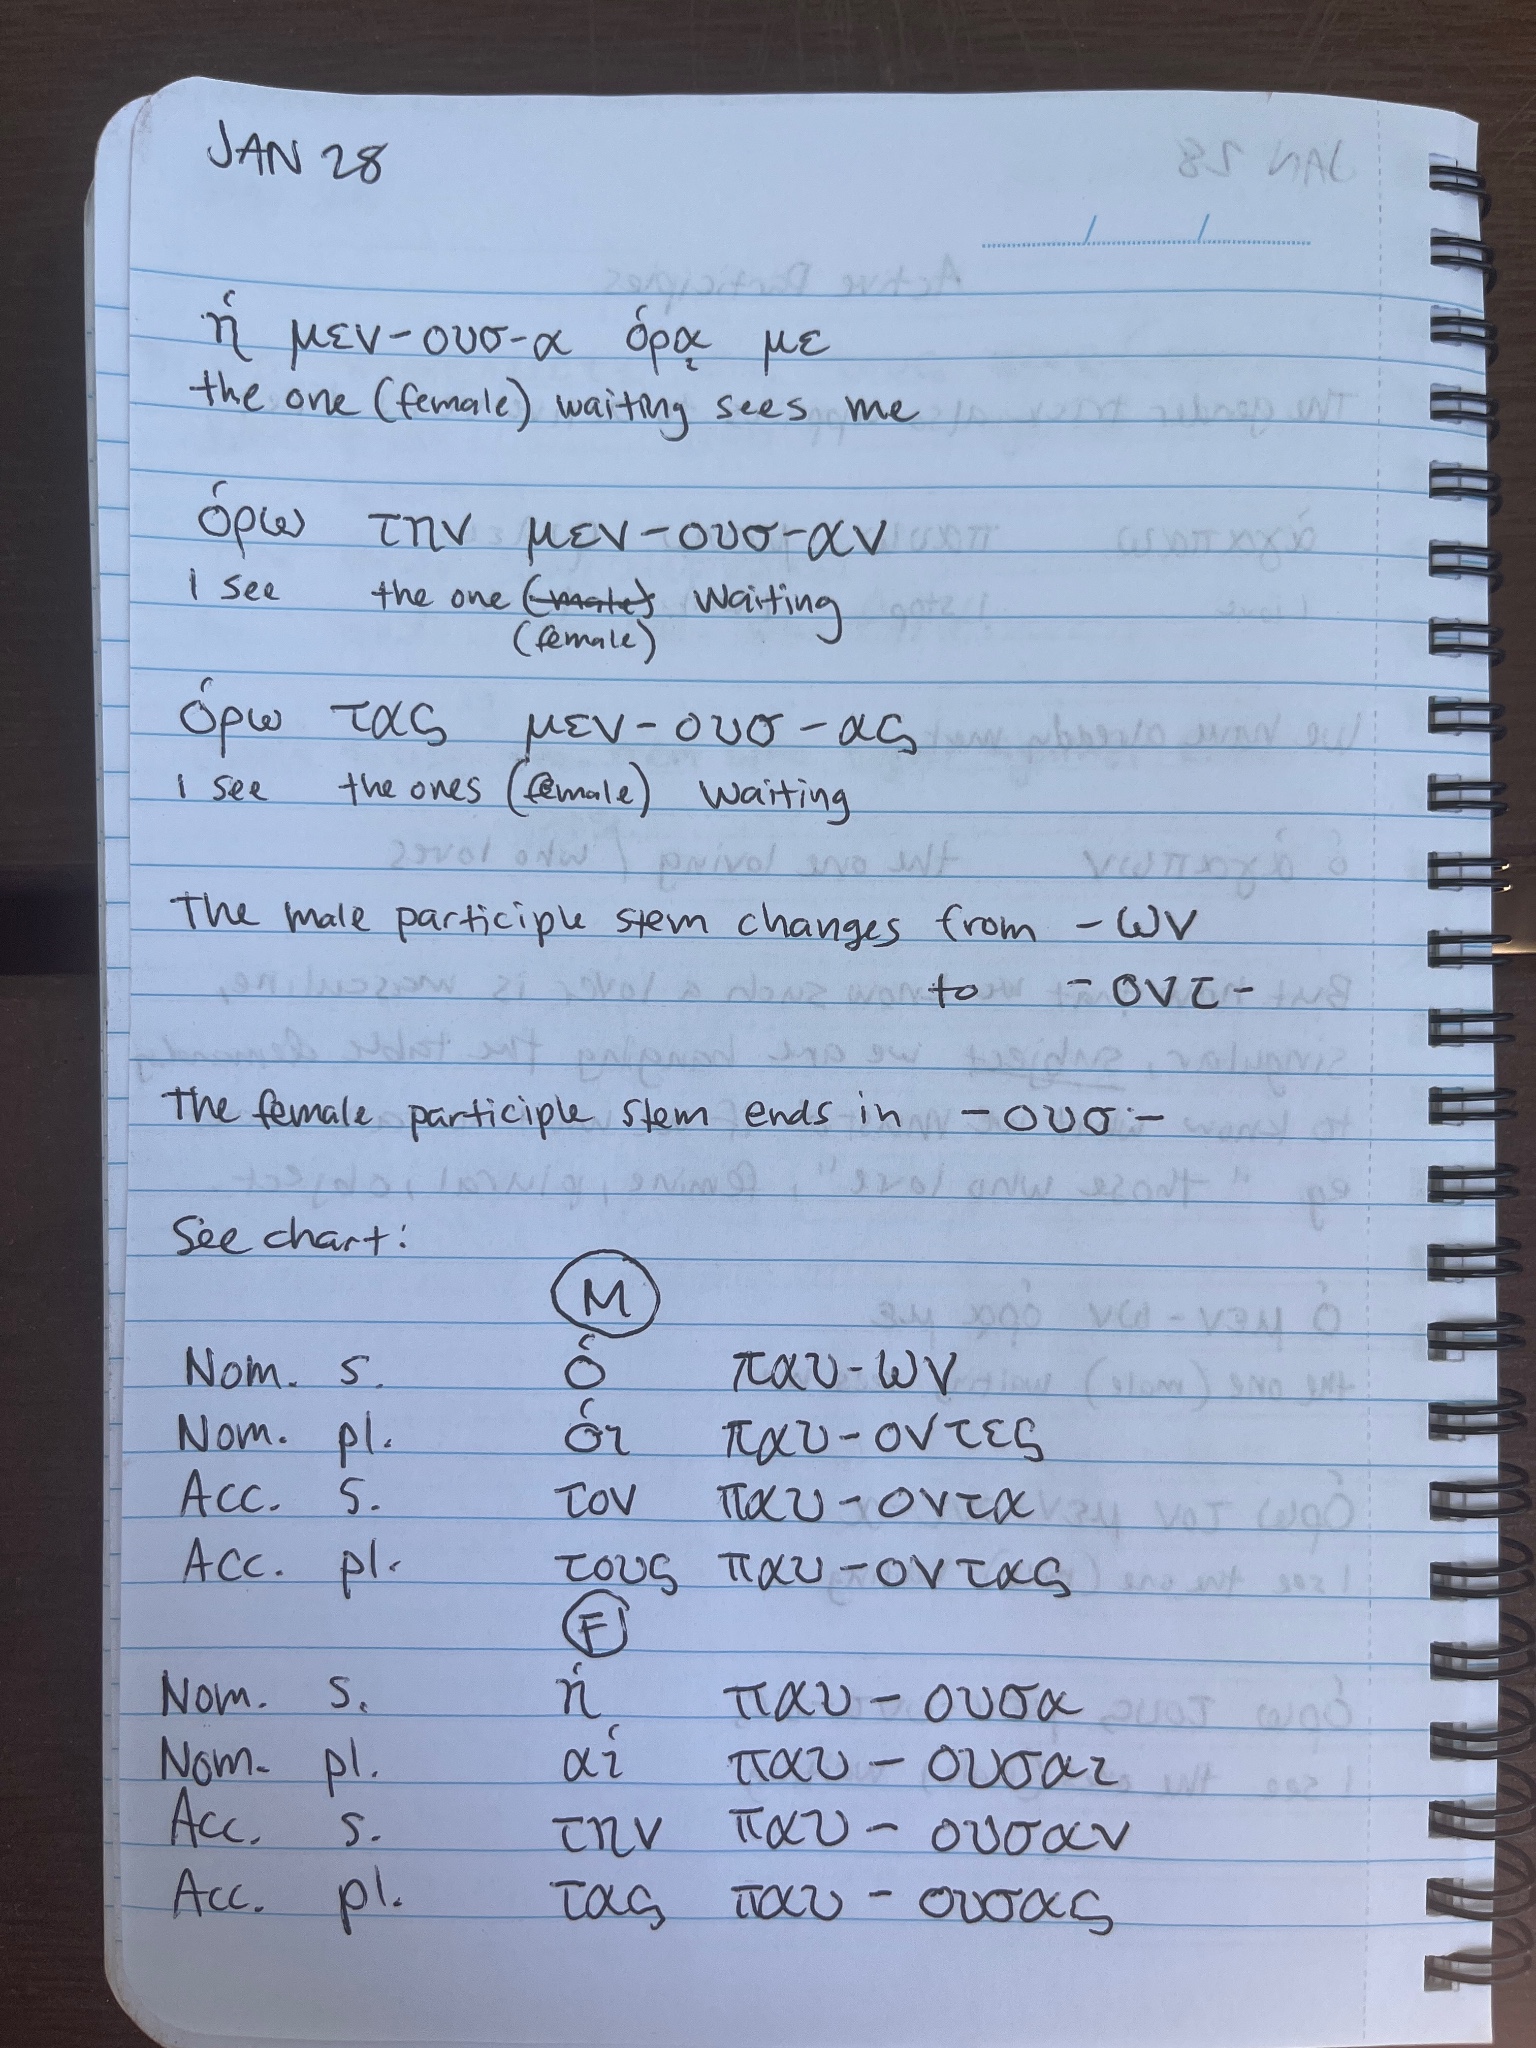 JAN 28
ἡ μεν-ουσ-α ὁρᾳ με
the one (female) waiting sees me
ὁρω την μεν-ουσ-αν
I see the one (male) waiting
(female)
ὁρω τας μεν-ουσ-ας
I see the ones (female) waiting
The male participle stem changes from -ων
to -οντ-
The female participle stem ends in -ουσ-
See chart:
M
Nom. s. ὁ παυ-ων
Nom. pl. ὁι παυ-οντες
Acc. s. τον παυ-οντα
Acc. pl. τους παυ-οντας
F
Nom. s. ἡ παυ-ουσα
Nom. pl. αἱ παυ-ουσαι
Acc. s. την παυ-ουσαν
Acc. pl. τας παυ-ουσας